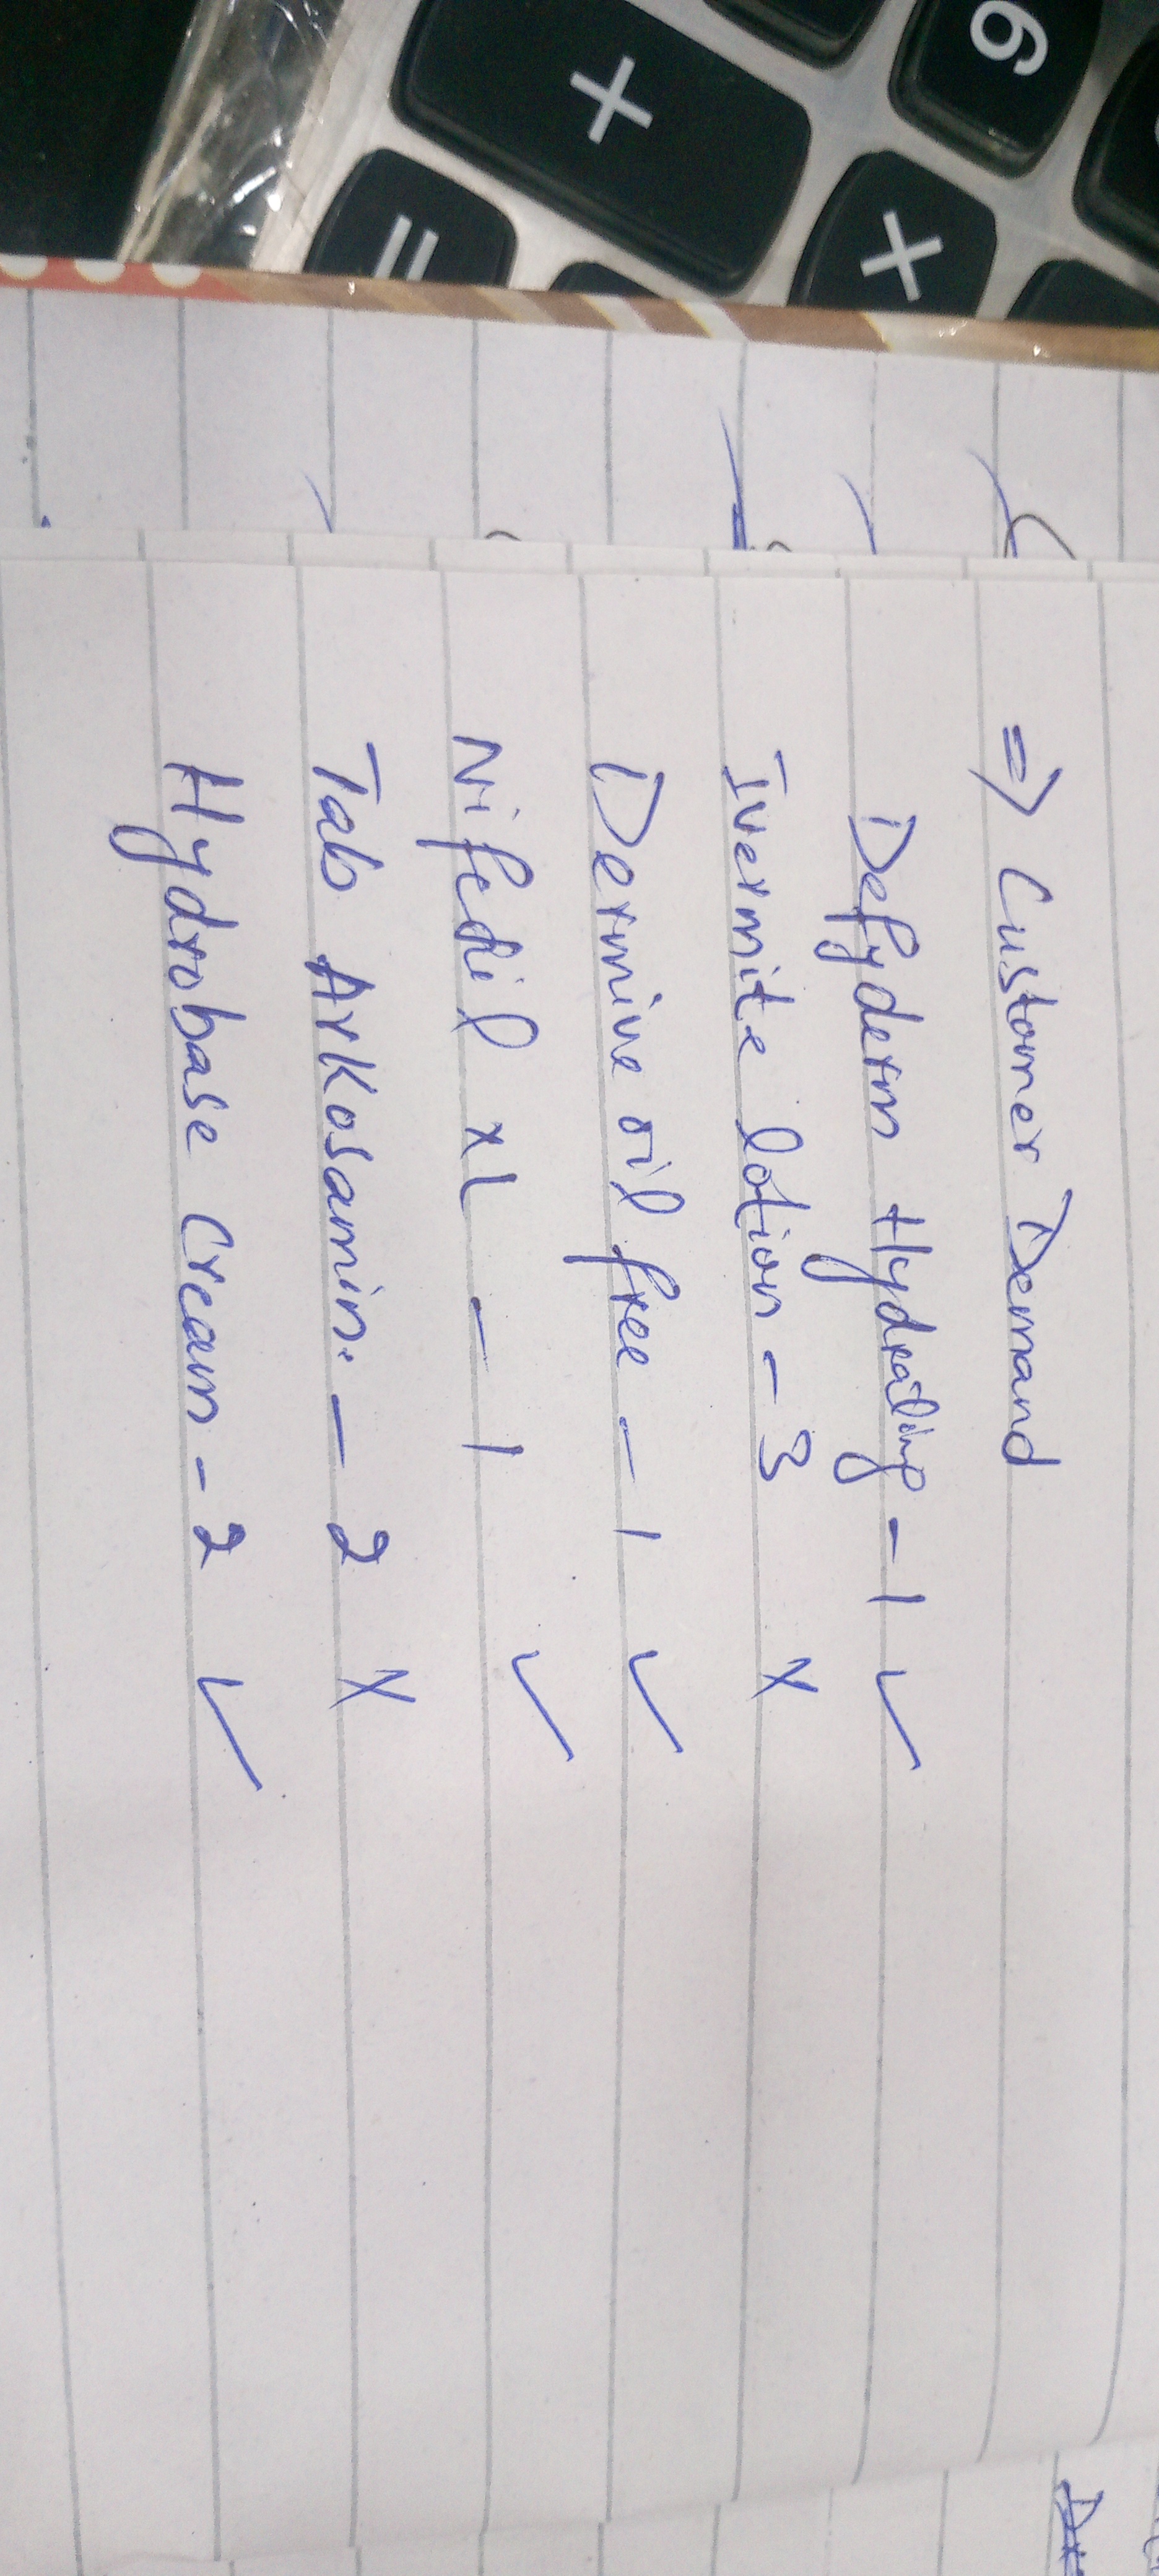 ⇒ Customer Demand
Defyderm Hydrating - 1 ✓
Ivermite lotion - 3 x
Dermive oil free - 1 ✓
Nifedil XL - 1 ✓
Tab Arkosamin. - 2 x
Hydrobase Cream - 2 ✓
6
+
×
=